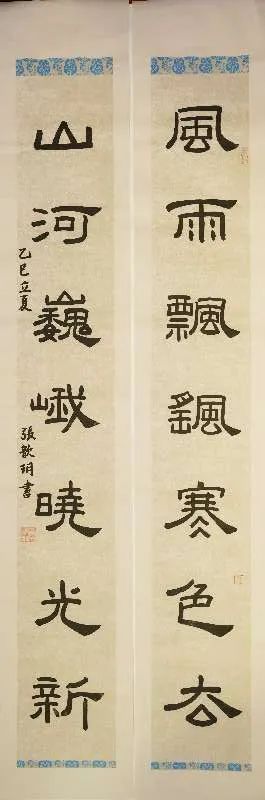 風雨飄颻寒色去
山河巍峨曉光新
乙巳立夏
張歆玥書